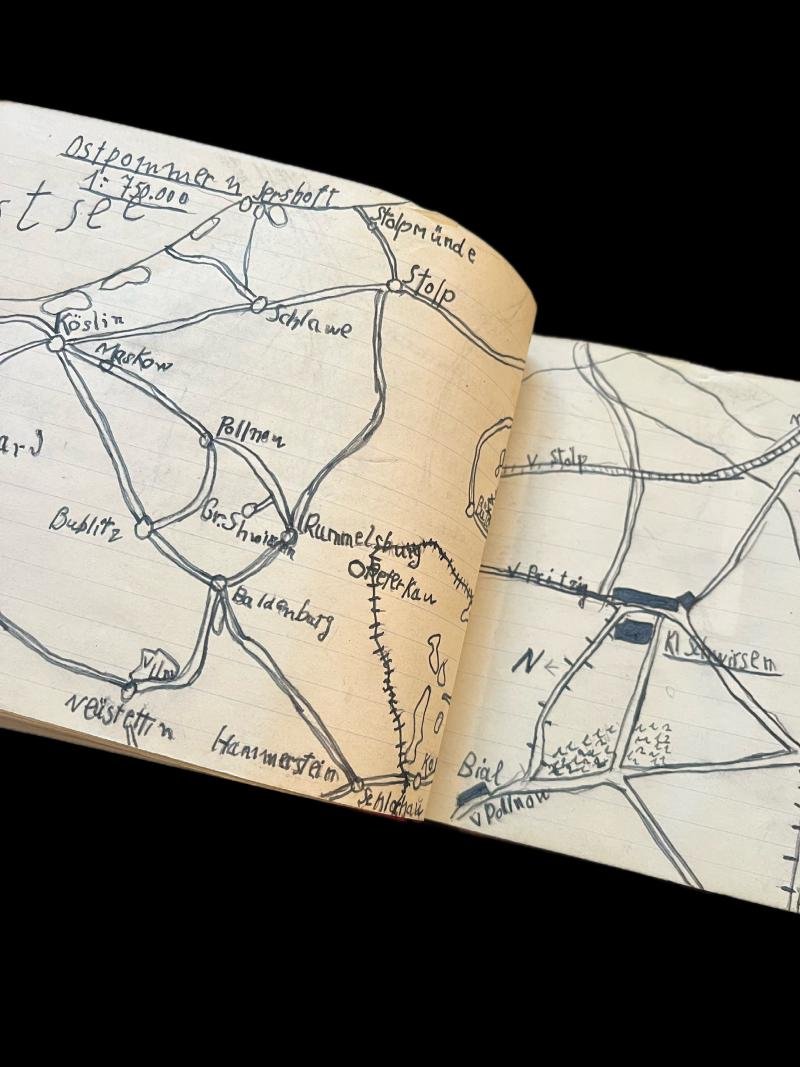 Ostpommern
1:750.000
Jershöft
Stolpmünde
Stolp
Köslin
Schlawe
Maskow
Pollnow
Bublitz
Gr. Schwirsen
Rummelsburg
Peterkau
Baldenburg
Vilm
Neüstettin
Hammerstein
Schlochau
v. Stolp
v Pritzig
N
Kl Schwirsen
Bial
v Pollnow